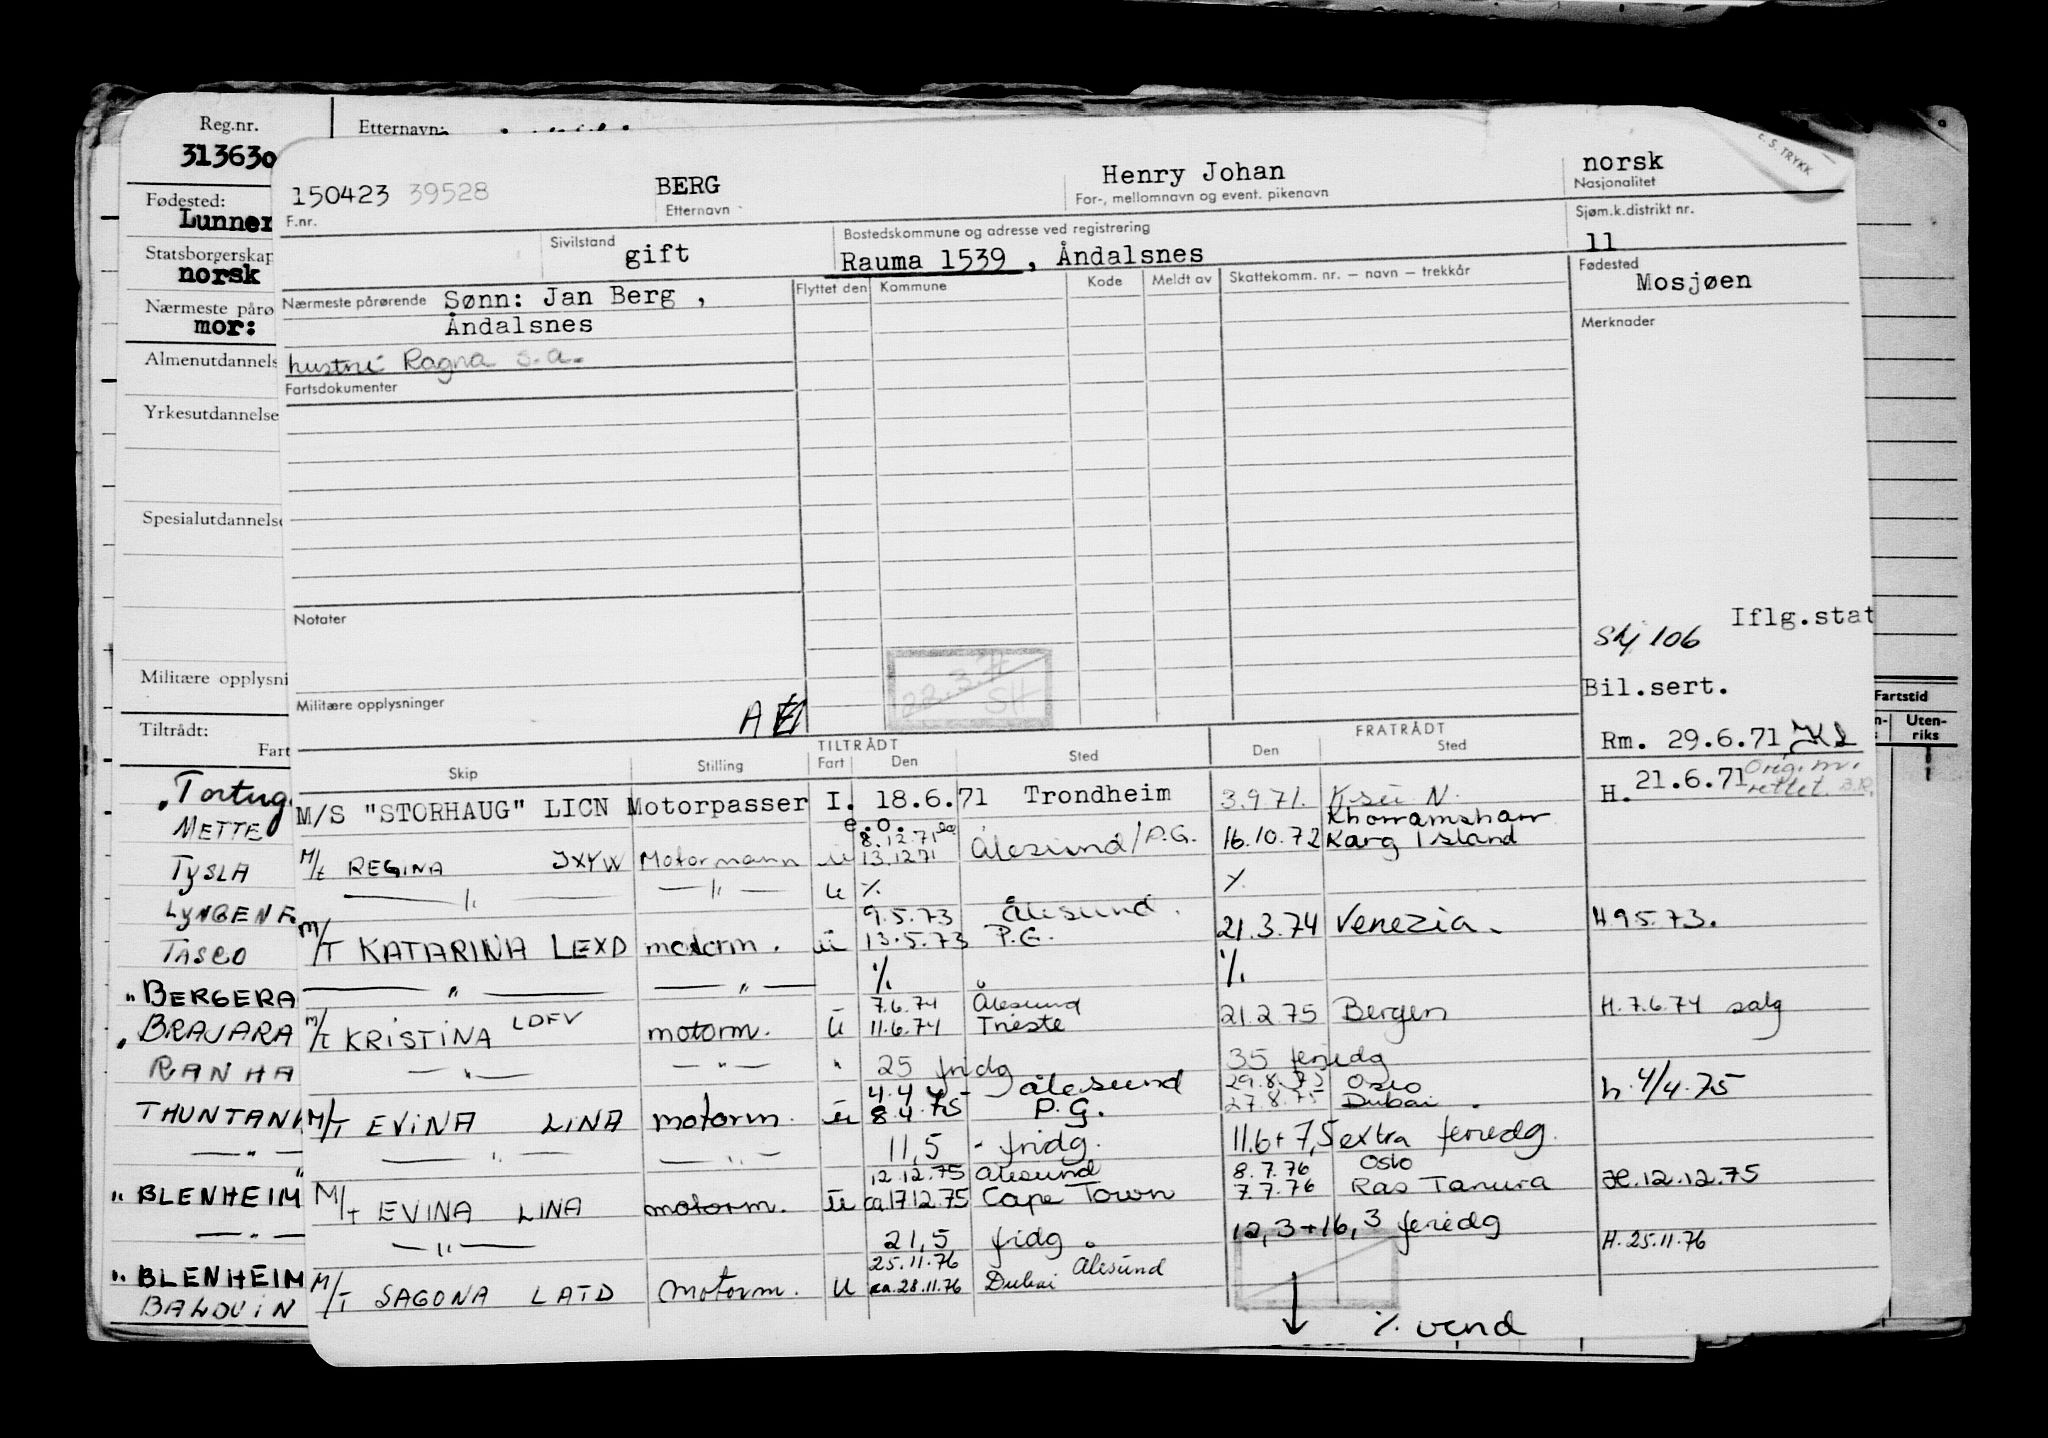 Reg.nr. Etternavn:
313630
Fødested:
Lunner
Statsborgerskap
norsk
Nærmeste påro
mor:
Almenutdannels
Yrkesutdannelse
Spesialutdannelse
Militære opplysni
Tiltrådt:
Fart
Tortug
METTE
TYSLA
LYNGENF
TASCO
" BERGERA
" BRAJARA
RANHA
THUNTANK
— " —
" BLENHEIM
— " —
" BLENHEIM
BALDUIN
c. S. TRYKK
150423 39528 BERG Henry Johan norsk
F.nr. Etternavn For-, mellomnavn og event. pikenavn Nasjonalitet
Sivilstand gift Bostedskommune og adresse ved registrering Sjøm.k.distrikt nr.
Rauma 1539, Åndalsnes 11
Nærmeste pårørende Sønn: Jan Berg, Flyttet den Kommune Kode Meldt av Skattekomm. nr. – navn – trekkår Fødested
Åndalsnes Mosjøen
hustru Ragna s.a. Merknader
Fartsdokumenter
Notater Iflg.stat
Skj 106
22.3.71
SH
Bil.sert.
Militære opplysninger A
Rm. 29.6.71
TILTRÅDT FRATRÅDT
Skip Stilling Fart Den Sted Den Sted
H. 21.6.71 rettet B.R.
M/S "STORHAUG" LICN Motorpasser I. 18.6.71 Trondheim 3.9.71. N.
e.o. Khorramshar
M/t REGINA JXYW Motormann u 8.12.71 13.12.71 Ålesund/P.G. 16.10.72 Karg Island
— " — — " — u ./. ./.
M/T KATARINA LEXD motorm. u 9.5.73 Ålesund. 13.5.73 P.G. 21.3.74 Venezia. H 9.5.73.
— " — — " — ./. ./.
M/t KRISTINA LDFV motorm. u 7.6.74 Ålesund 11.6.74 Trieste 21.2.75 Bergen H. 7.6.74 salg
— " — — " — " 25 fridg 35 feriedg
M/T EVINA LINA motorm. u 4.4. Ålesund 8.4.75 P.G. 29.8.75 Oslo 27.8.75 Dubai. h. 4/4.75
— " — — " — 11,5 - fridg. 11.6 + 7,5 extra feriedg.
M/t EVINA LINA motorm. u 12.12.75 Ålesund ca 17.12.75 Cape Town 8.7.76 Oslo 7.7.76 Ras Tanura H. 12.12.75
— " — 21,5 fridg. 12,3+16,3 feriedg
M/T SAGONA LATD Motorm. U 25.11.76 Ålesund ca. 28.11.76 Dubai H. 25.11.76
./. vend
Fartstid
Uten-
riks